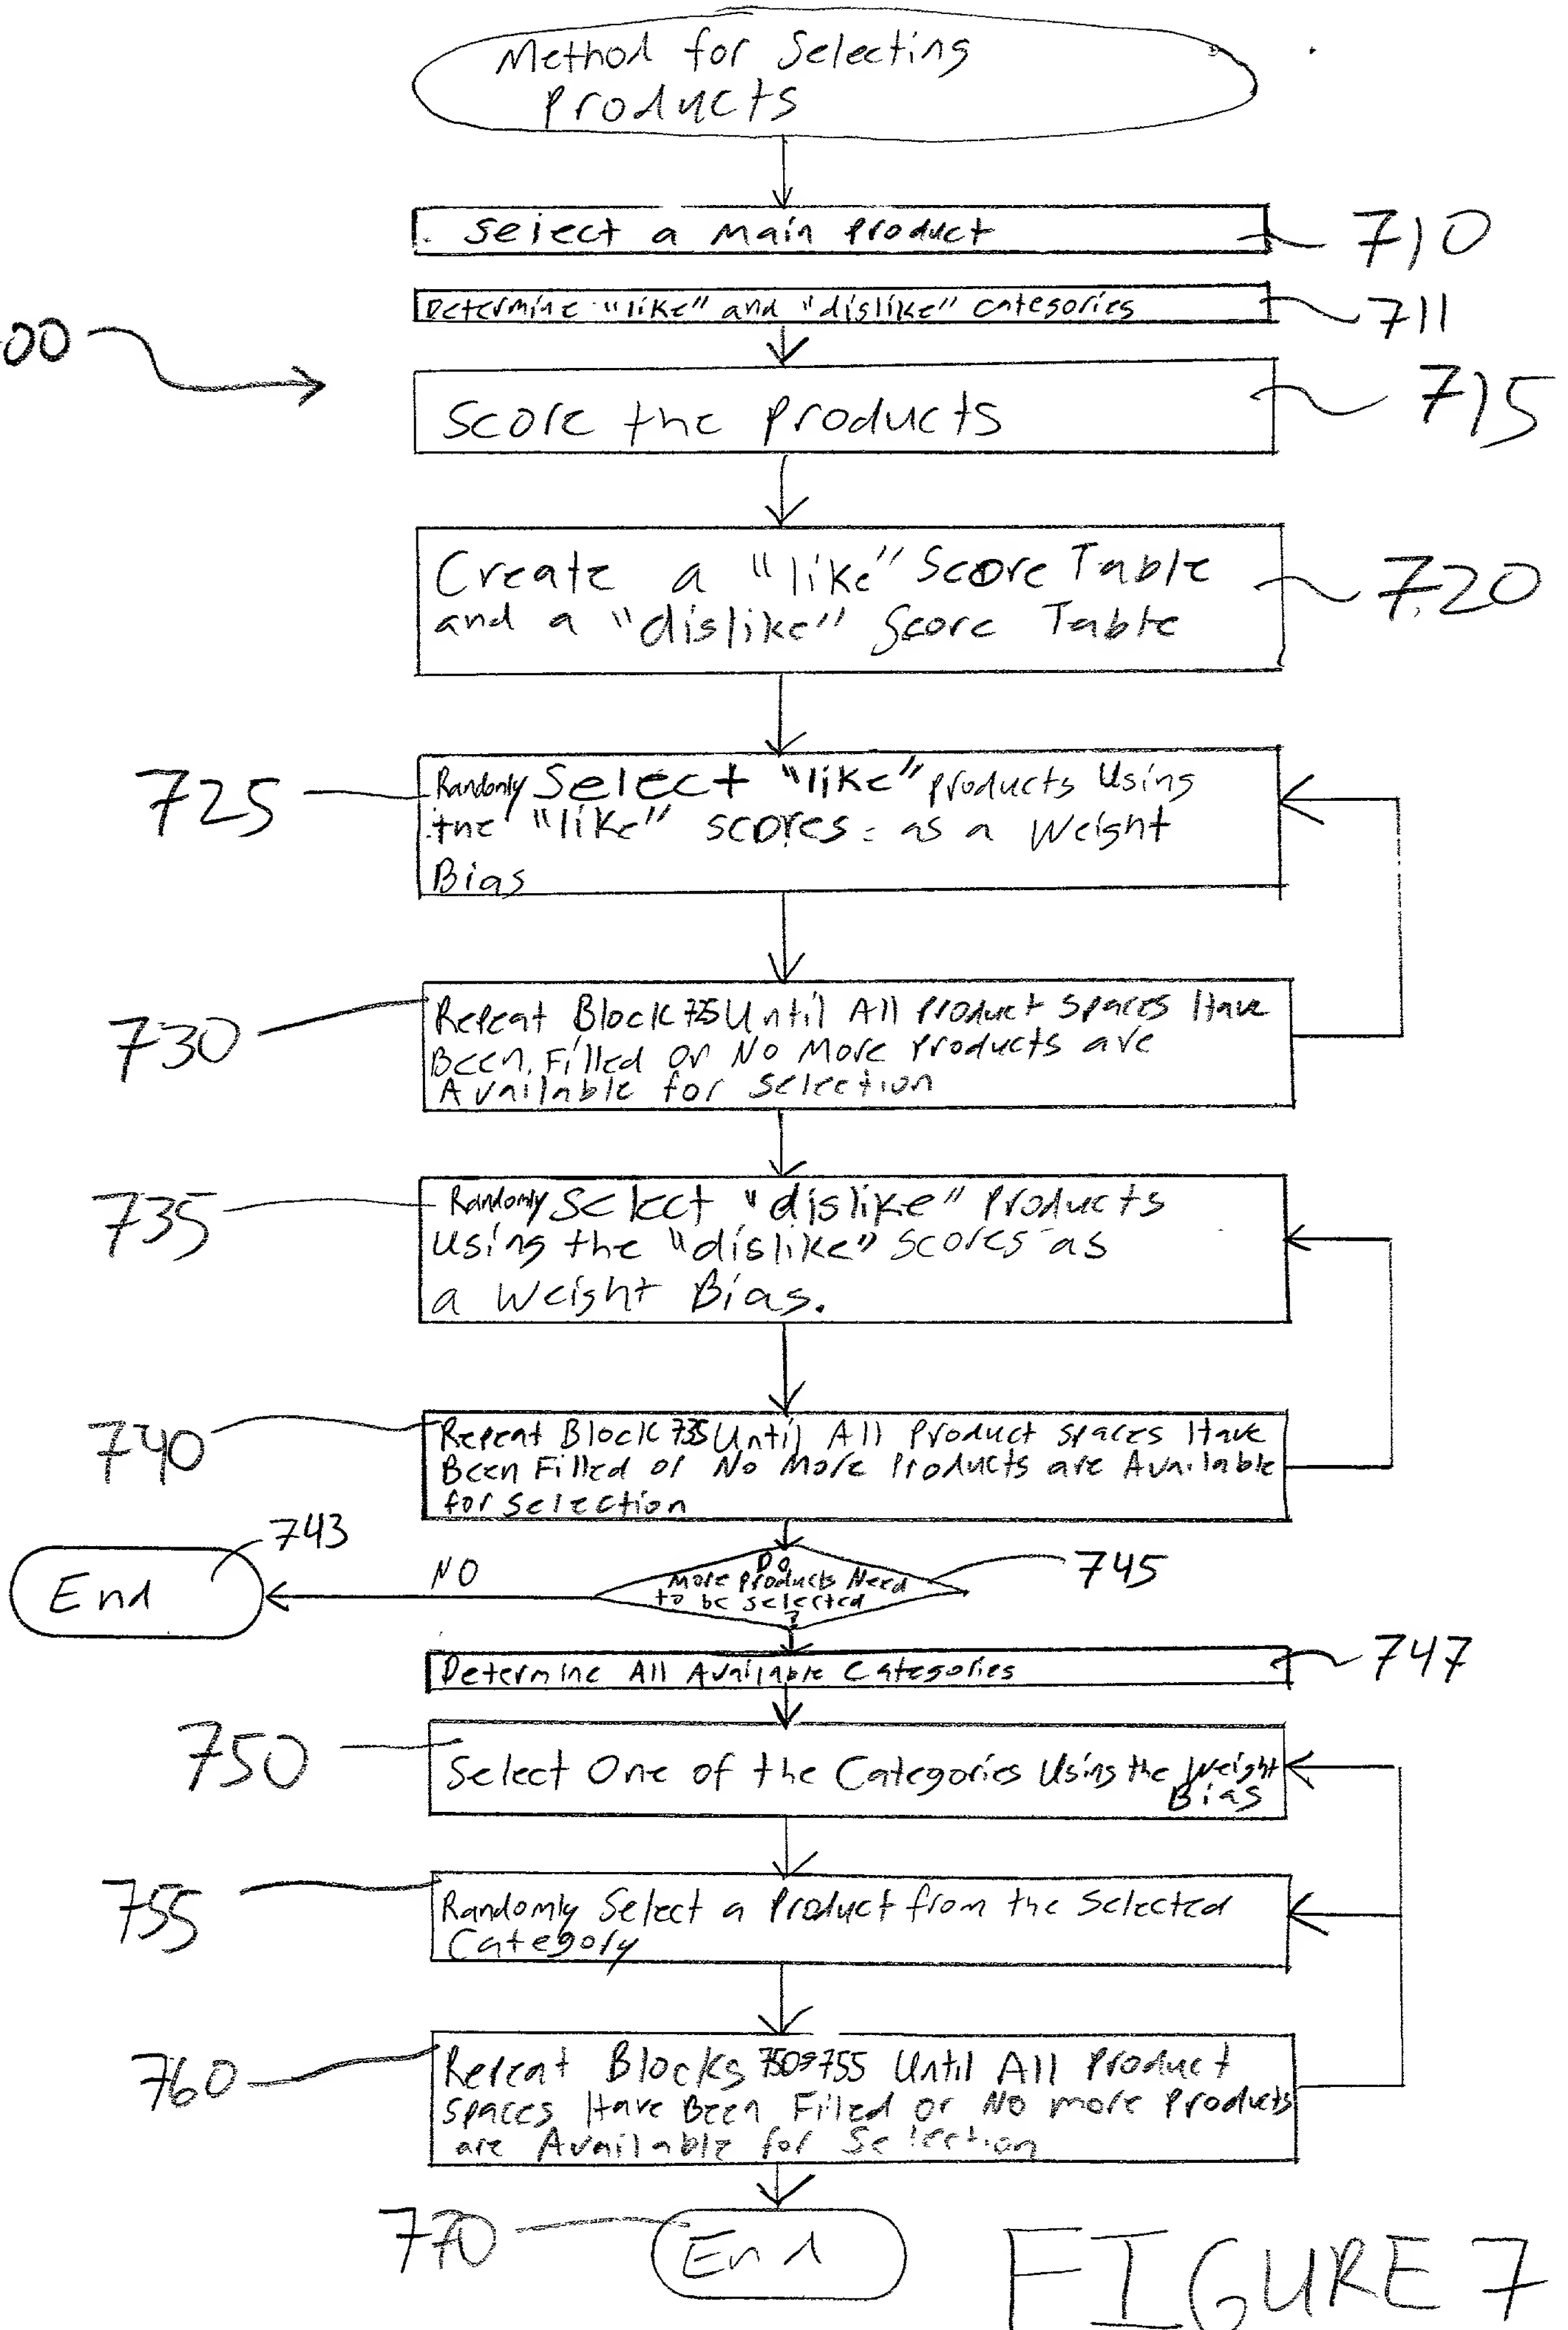 Method for Selecting
Products
Select a Main Product
710
Determine "like" and "dislike" Categories
711
00
Score the Products
715
Create a "like" Score Table
and a "dislike" Score Table
720
725
Randomly Select "like" products Using
the "like" scores as a Weight
Bias
730
Repeat Block 725 Until All Product Spaces Have
Been Filled or No More Products are
Available for Selection
735
Randomly Select "dislike" Products
Using the "dislike" Scores as
a Weight Bias.
740
Repeat Block 735 Until All Product Spaces Have
Been Filled or No More Products are Available
for Selection
743
End
NO
Do
More Products Need
to be selected
?
745
Determine All Available Categories
747
750
Select One of the Categories Using the Weight
Bias
755
Randomly Select a Product from the Selected
Category
760
Repeat Blocks 750 755 Until All Product
Spaces Have Been Filled or No more Products
are Available for Selection
770
End
FIGURE 7